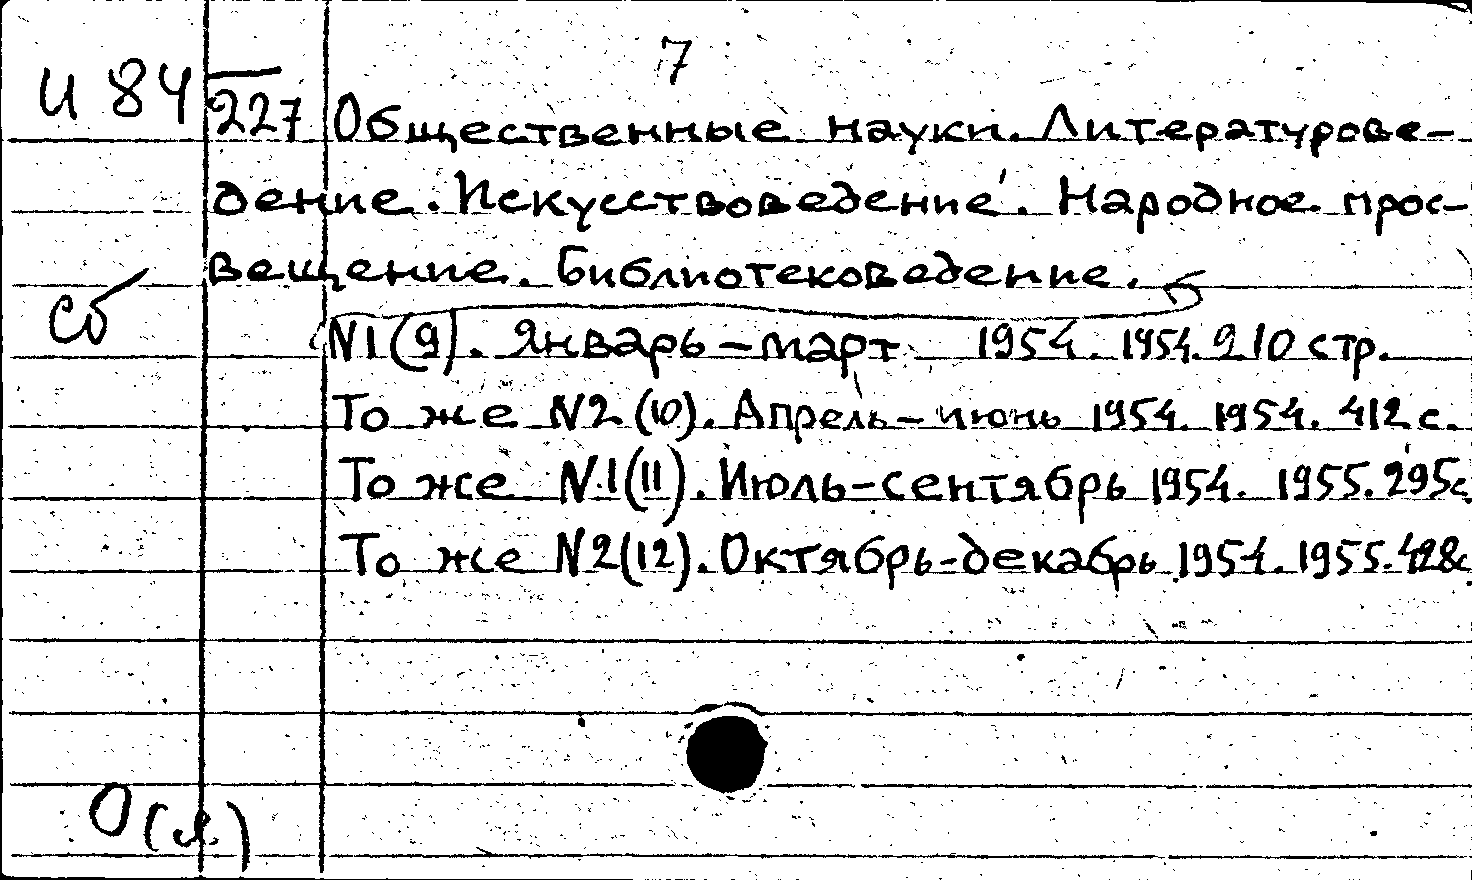 7
И 84 227 Общественные науки. Литературове-
дение. Искусствоведение. Народное прос-
вещение. Библиотековедение.
Сб
N1(9). Январь-март 1954. 1954. 210 стр.
То же N2(10). Апрель-июнь 1954. 1954. 412 с.
То же N.1(11). Июль-сентябрь 1954. 1955. 295с.
То же N2(12). Октябрь-декабрь 1954. 1955. 428с